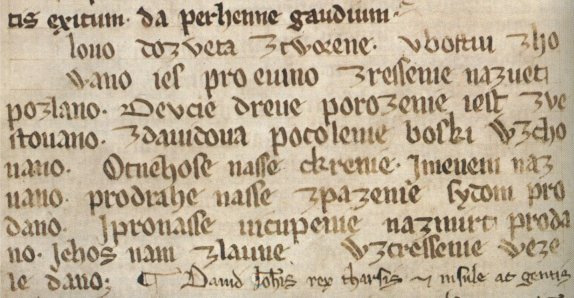 tis exitum. da perhenne gaudium.
lovo dozveta ztvorene. vbostui zho
wano ies pro evino zressenie nazuet
pozlano. Deucie dreue porozenie iest zve
stouano. zdauidoua pocolenie boski wzcho
uano. Otnehose nasse ckrenie. Imeneni naz
uano. prodrahe nasse zpazenie sydom pro
dano. Ipronasse uicupenie nazmirt proda
no. Iehos nam zlaune wzcressenie weze
le dano: ¶ Dauid Iohis rex tharsis ⁊ insule ac gentis